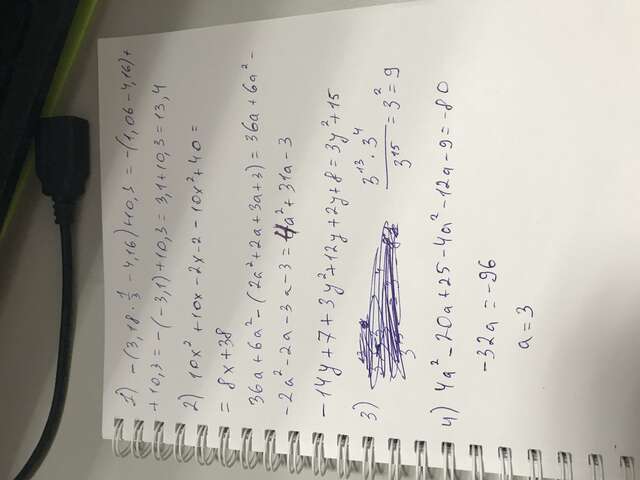 1) -(3,18 · 1/3 - 4,16) + 10,3 = -(1,06 - 4,16) +
+ 10,3 = -(-3,1) + 10,3 = 3,1 + 10,3 = 13,4
2) 10x² + 10x - 2x - 2 - 10x² + 40 =
= 8x + 38
36a + 6a² - (2a² + 2a + 3a + 3) = 36a + 6a² -
- 2a² - 2a - 3a - 3 = 4a² + 31a - 3
- 14y + 7 + 3y² + 12y + 2y + 8 = 3y² + 15
3) 3¹³ · 3⁴ / 3¹⁵ = 3² = 9
4) 4a² - 20a + 25 - 4a² - 12a - 9 = -80
-32a = -96
a = 3